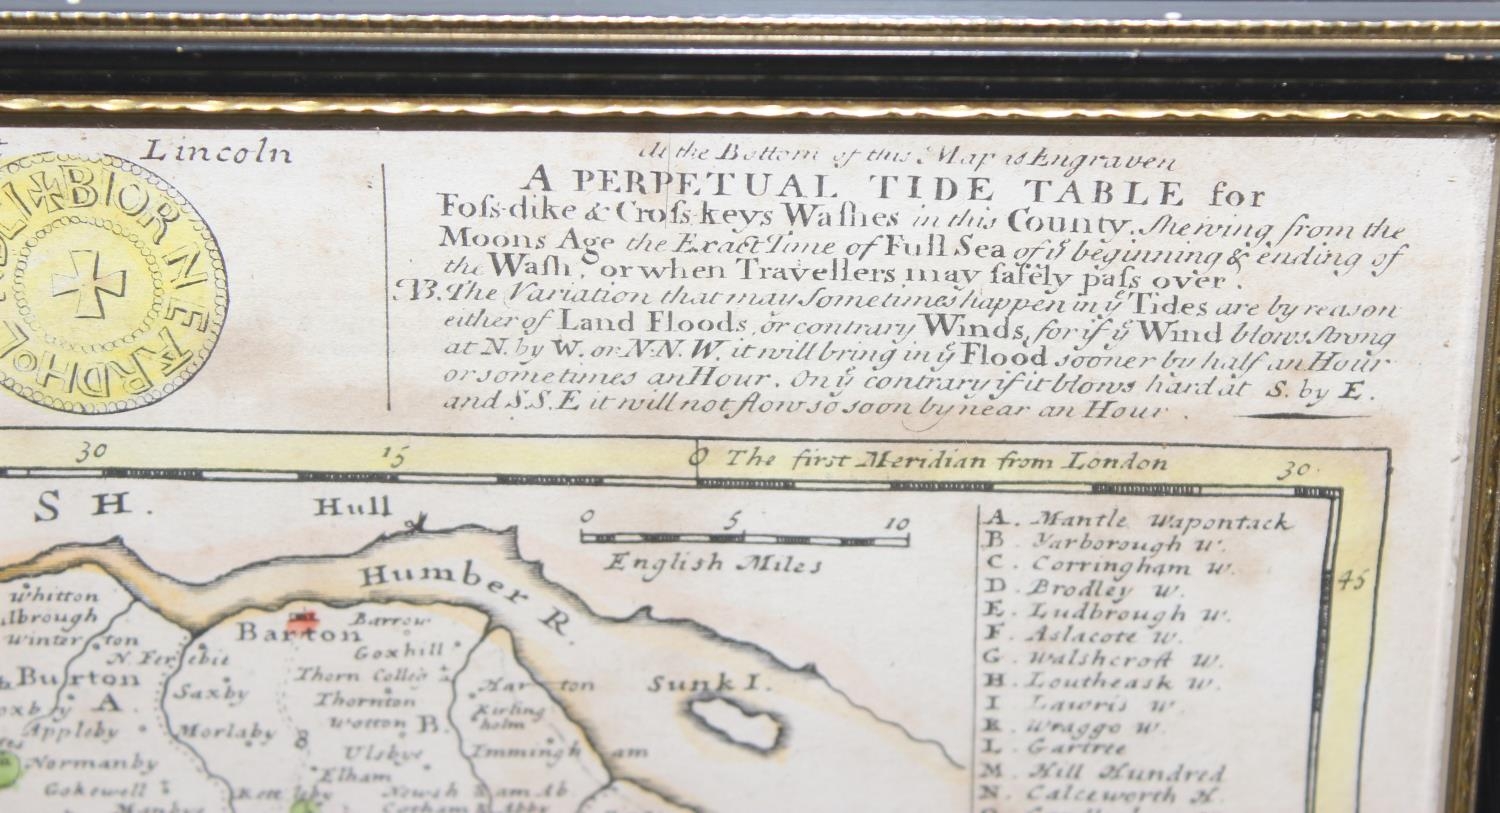 Lincoln
At the Bottom of this Map is Engraven
A PERPETUAL TIDE TABLE for
Foſs-dike & Croſs-keys Waſhes in this County. Shewing from the
Moons Age the Exact Time of Full Sea of yͤ beginning & ending of
the Waſh, or when Travellers may ſafely paſs over.
NB. The Variation that may Sometimes happen in yͤ Tides are by reason
either of Land Floods, or contrary Winds, for if yͤ Wind blows ſtrong
at N. by W. or N.N.W. it will bring in yͤ Flood sooner by half an Hour
or sometimes an Hour. On yͤ contrary if it blows hard at S. by E.
and S.S.E it will not flow so soon by near an Hour.
BIORNE
ARDHoL
30 15 0 The first Meridian from London 30
SH.
Hull
0 5 10
English Miles
Humber R.
Sunk I.
45
A. Mantle Wapontack
B. Yarborough W.
C. Corringham W.
D. Brodley W.
E. Ludbrough W.
F. Aslacote W.
G. Walshcroft W.
H. Loutheask W.
I Lawris W.
K. Wraggo W.
L. Gartree
M. Hill Hundred
N. Calceworth H.
Whitton
Winterton
N. Ferebie
Burton
A.
Appleby
Normanby
Gokewell
Manby
Barton
Barrow
Goxhill
Thorn Colleg
Thornton
Wotton
B.
Saxby
Morlaby
8
Ulsbye
Elham
Kettleby
Harton
Kirlingholm
Immingham
Newsham Ab
Cotham Abby